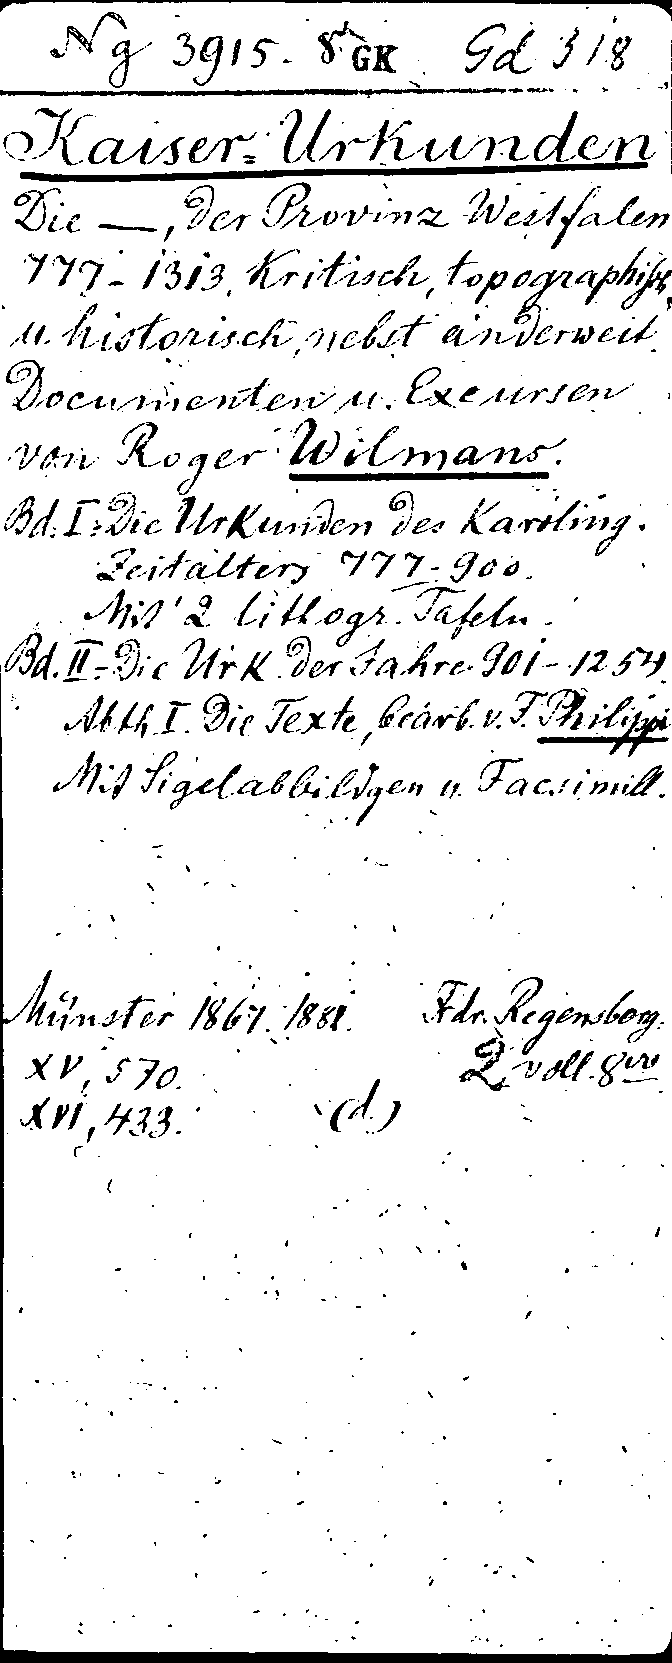 Ng 3915. 8° GK Gd 318
Kaiser-Urkunden
Die —, der Provinz Westfalen
777-1313, Kritisch, topographisch
u. historisch, nebst anderweit.
Documenten u. Excursen
von Roger Wilmans.
Bd. I: Die Urkunden des Karoling.
Zeitalters 777-900.
Mit 2 lithogr. Tafeln.
Bd. II: Die Urk. der Jahre 901-1254.
Abth. I. Die Texte, bearb. v. F. Philippi
Mit Sigelabbildgen u. Facsimill.
Münster 1867. 1881. Frdr. Regensberg.
XV, 570. 2 voll. 8vo
XVI, 433. (d.)